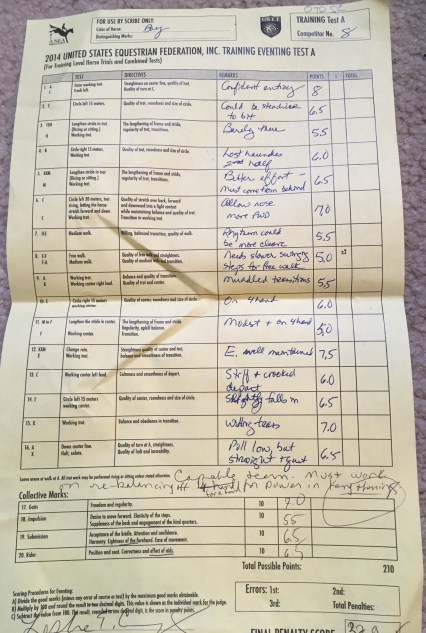 FOR USE BY SCRIBE ONLY:
Color of Horse: Bay
Distinguishing Marks:
USEA
USEF
TRAINING Test A
Competitor No. 8
2014 UNITED STATES EQUESTRIAN FEDERATION, INC. TRAINING EVENTING TEST A
(For Training Level Horse Trials and Combined Tests)
TEST DIRECTIVES REMARKS POINTS TOTAL
1. A Enter working trot Straightness on center line, quality of trot. Confident entry 8
C Track left. Quality of turn at C.
2. E Circle left 15 meters. Quality of trot, roundness and size of circle. Could be steadier to bit 6.5
Lengthen stride in trot The lengthening of frame and stride, Barely there 5.5
(Rising or sitting.) regularity of trot, transitions.
Working trot.
4. B Circle right 15 meters. Quality of trot, roundness and size of circle. Lost haunches 6.0
Working trot. 2nd half
5. KXM Lengthen stride in trot The lengthening of frame and stride, Better effort - 6.5
(Rising or sitting.) regularity of trot, transitions. must come from behind
M Working trot.
6. C Circle left 20 meters, Quality of stretch over back, forward Allow nose 7.0
rising, letting the horse and downward into a light contact more FWD
stretch forward and down while maintaining balance and quality of trot.
C Working trot. Transition to working trot.
7. Medium walk. balanced transition, quality of walk. Rhythm could 5.5
be more clear
8. Free walk. Needs slower swinging 5.0 x2
Medium walk. steps for free walk
9. A Working trot. Balance and quality of transition. Muddled transitions 5.5
K Working canter right lead. Quality of trot and canter.
10. E Circle right 15 meters Quality of canter, roundness and size of circle. On 4 hand 6.0
working canter.
11. M to F Lengthen the stride in canter. The lengthening of frame and stride. Modest + on 4 hand 5.0
Regularity, uphill balance.
F Working canter. Transition.
12. KXM Change rein. Straightness quality of canter and trot, E. well maintained 7.5
X Working trot. balance and smoothness of transition.
13. C Working canter left lead. Calmness and smoothness of depart. Stiff + crooked 6.0
depart
14. E Circle left 15 meters Quality of canter, roundness and size of circle. Slightly falls in 6.5
working canter.
15. K Working trot. Balance and obedience in transition. 7.0
16. A Down center line. Quality of turn at A, straightness. Poll low, but 6.5
X Halt; salute. Quality of halt and immobility. straight + quiet
Leave arena at walk at A. All trot work may be performed rising or sitting unless stated otherwise.
Capable team. Must work
on re-balancing for power in lengthenings
Collective Marks:
17. Gaits Freedom and regularity. 10 7.0
18. Impulsion Desire to move forward. Elasticity of the steps. 10 5.5
Suppleness of the back and engagement of the hind quarters.
19. Submission Acceptance of the bridle. Attention and confidence. 10 6.5
Harmony. Lightness of the forehand. Ease of movement.
20. Rider Position and seat. Correctness and effect of aids. 10 6.5
Total Possible Points: 210
Scoring Procedures for Eventing:
A) Divide the good marks (minus any error of course or test) by the maximum good marks obtainable.
B) Multiply by 100 and round the result to two decimal digits. This value is shown as the individual mark for the judge.
Errors: 1st: 2nd:
3rd: Total Penalties:
FINAL PENALTY SCORE